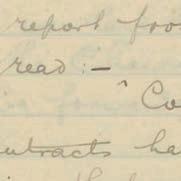 report fro
read:—
" Co
ntracts ha